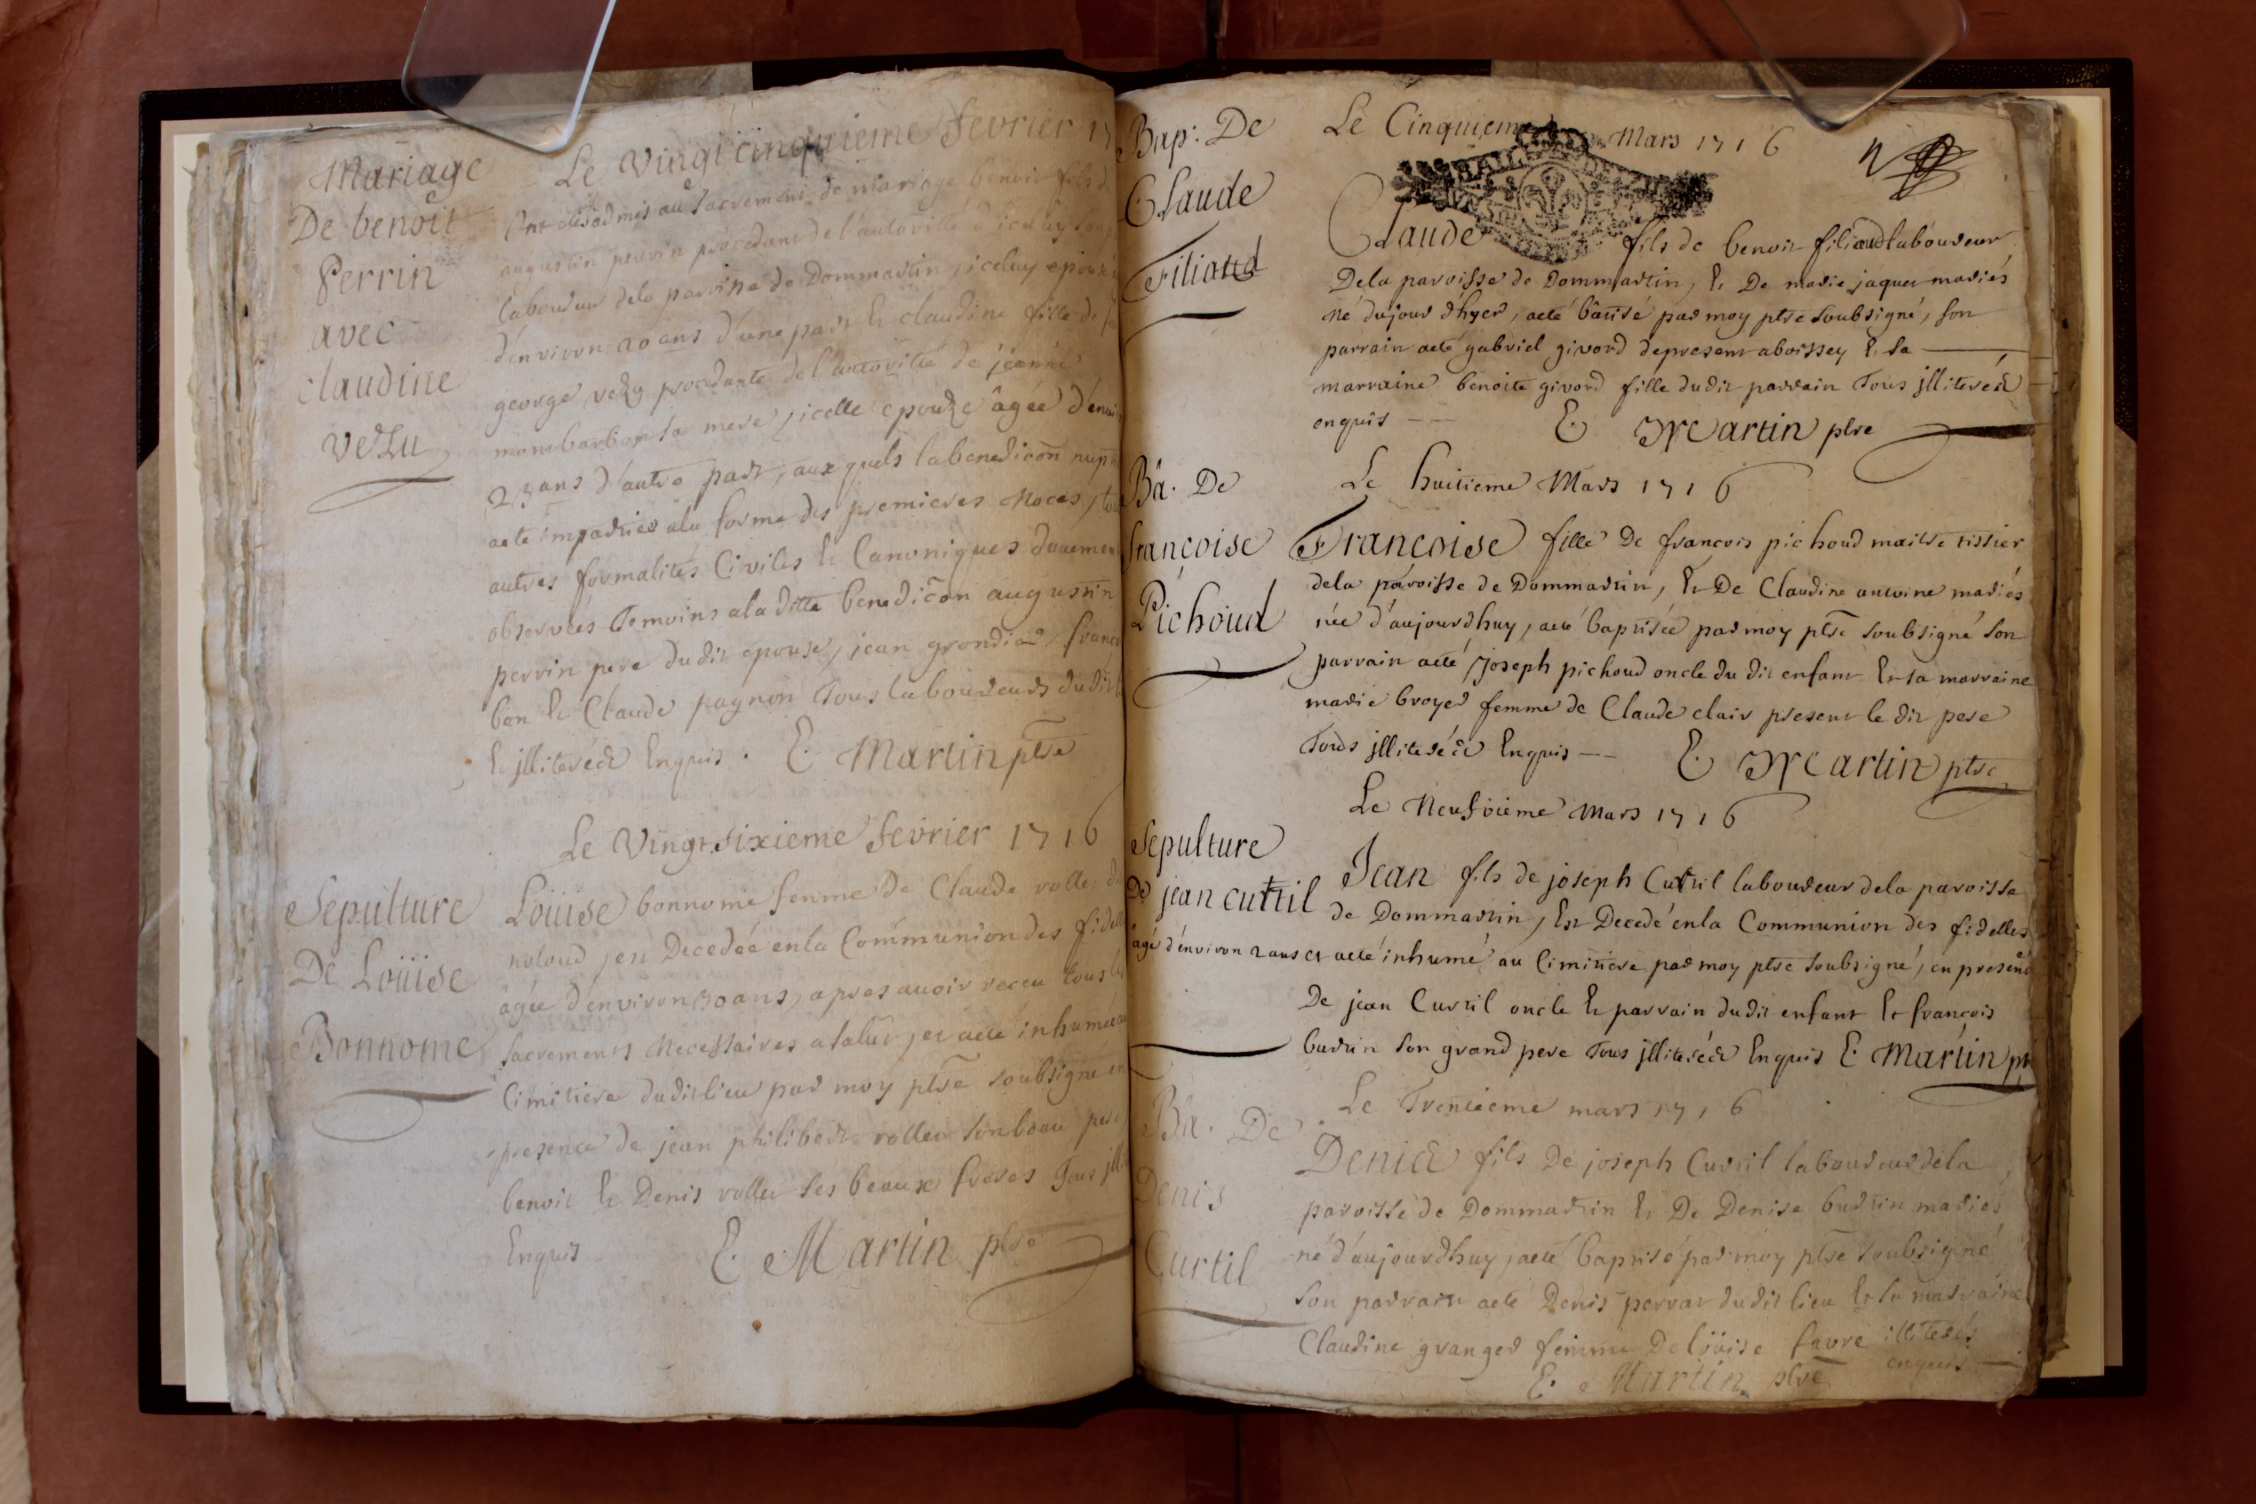 Mariage
De benoît
Perrin
avec
claudine
Verzu
Le Vingt cinquieme fevrier 17
Ont estés admis au sacrement de mariage benoit fils d
augustin perrin procedant de l'autorité d'iceluy
laboureur dela paroisse de Dommartin, iceluy epoux
d'environ 20 ans d'une part et claudine fille de
george procedante de l'autorité de jeanne
sa mere, icelle epouze âgée d'envi
23 ans d'autre part, aux quels la benediçon nup
aeté impartiés ala forme des premieres Noces,
autres formalités Civiles et Canoniques duuement
observées Temoins ala ditte benediçon augustin
perrin pere dudit epoux, jean grandia, franc
bon et Claude pagnon Tous laboureurs dudit
et jlliterées Enquis. E. Martin ptre
Le Vingt sixieme fevrier 1716
Sepulture
De Loüise
Bonnome
Loüise bonnome femme de Claude rollet
est Decedée en la Communion des fidell
âgée d'environ 30 ans, apres avoir receu tous les
sacrements Necessaires a salut, et aeté inhumée
Cimitiere dudit lieu par moy ptre soubsigné en
presence de jean philibert rollet son beau pere
benoit et Denis rollet ses beaux freres Tous jll
Enquis E. Martin ptre
Bap: De
Claude
Filiand
Le Cinquieme Mars 1716
Claude fils de benoit filiand laboureur
Dela paroisse de Dommartin, et De marie jaquet mariés
né dujour d'hyer, aeté batisé par moy ptre soubsigné, son
parrain aeté gabriel givord depresent aboissey et sa
marraine benoite givord fille dudit parrain Tous jlliterés
enquis E. Martin ptre
Ba. De
francoise
Pichoud
Le huitieme Mars 1716
Francoise fille De francois pichoud maitre tissier
dela paroisse de Dommartin, et De Claudine antoine mariés
née d'aujourdhuy, aeté baptisée par moy ptre soubsigné son
parrain aeté joseph pichoud oncle du dit enfant et sa marraine
marie broyer femme de Claude clair present le dit pere
Tous jlliterés Enquis E. Martin ptre
Le Neufvieme Mars 1716
Sepulture
De jean curtil
Jean fils de joseph Curtil laboureur dela paroisse
de Dommartin, est Decedé en la Communion des fidelles
âgé d'environ 2 ans et aeté inhumé au Cimitiere par moy ptre soubsigné, en presence
De jean Curtil oncle et parrain dudit enfant et francois
burtin son grand pere Tous jlliterés Enquis E. Martin ptre
Ba. De
Denis
Curtil
Le Trentieme mars 1716
Denis fils de joseph Curtil laboureur dela
paroisse de Dommartin et De Denise burtin mariés
né d'aujourdhuy, aeté baptisé par moy ptre soubsigné
son parrain aeté Denis perrat dudit lieu et sa marraine
Claudine granger femme De loüise favre illiterés
enquis
E. Martin ptre